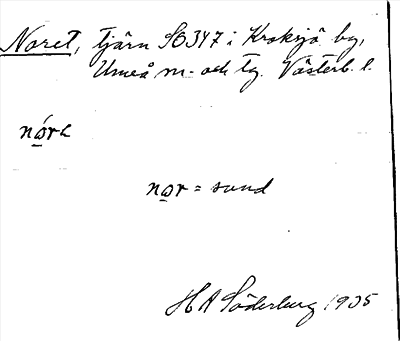 Noret, tjärn SO347 i Kroksjö by,
Umeå m. och tg. Västerb. l.
nor = sund
H A Söderberg 1935